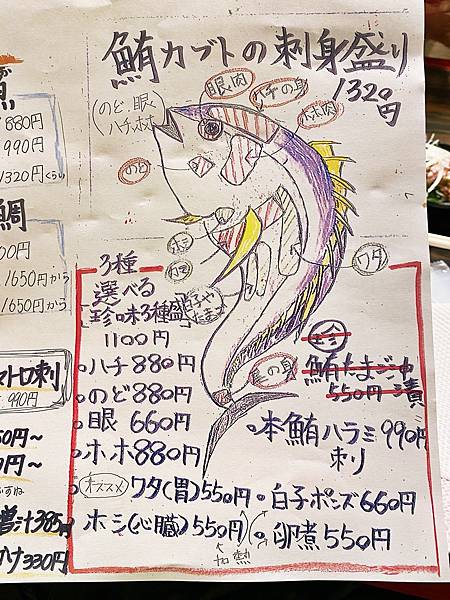 鮪カブトの刺身盛り
1320円
(のど、眼、
ハチ、ホホ)
眼肉
ハチの身
ホホ肉
のど
ホシ
カマ
白子や
たまご
ワタ
尾の身
3種
選べる
珍味3種盛
1100円
。ハチ880円
。のど880円
。眼 660円
。ホホ880円
オススメ ワタ(胃)550円
ホシ(心臓)550円
加熱
珍
鮪たまご沖漬
550円
。本鮪ハラミ990円
刺り
。白子ポンズ660円
。卵煮550円
880円
990円
1320円くらい
鯛
00円
1650円から
1650円から
マトロ刺
990円
50円~
0円~
噌汁385円
かけ330円